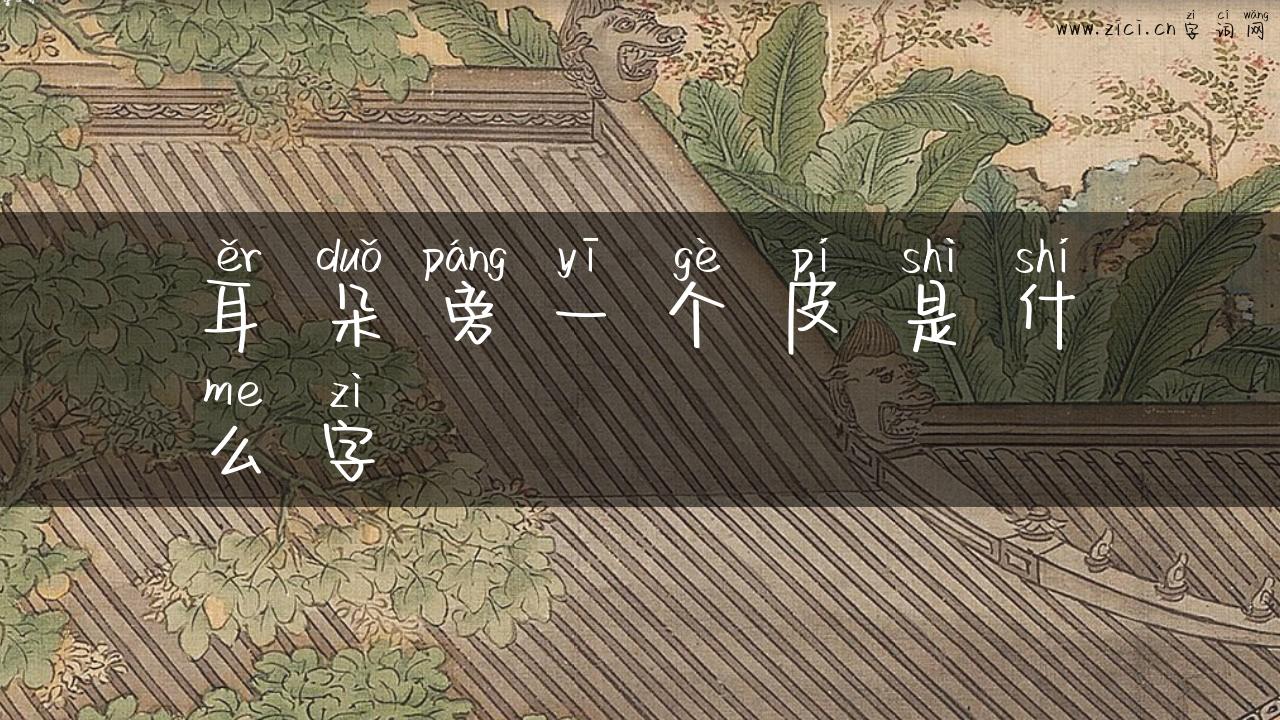 zì cí wǎng
www.zici.cn 字词网
ěr duǒ páng yī gè pí shì shí
耳朵旁一个皮是什
me zì
么字